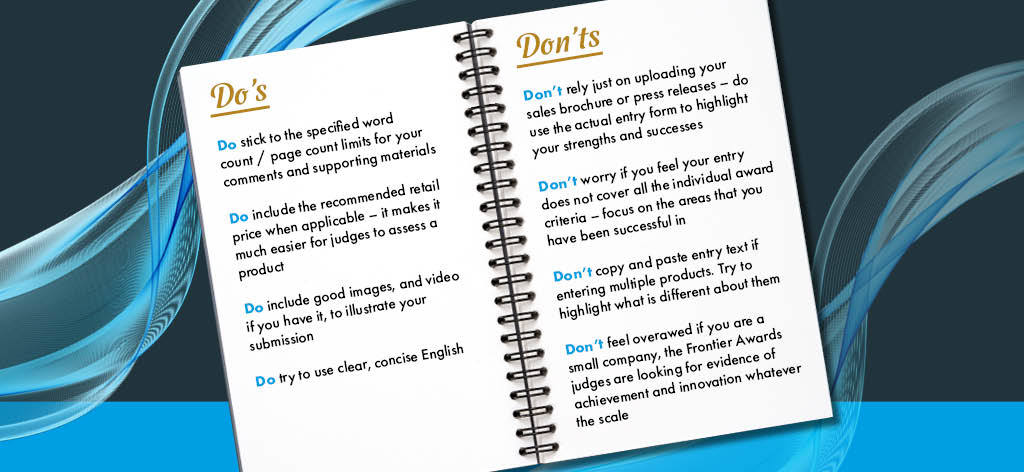 Do's
Do stick to the specified word
count / page count limits for your
comments and supporting materials
Do include the recommended retail
price when applicable – it makes it
much easier for judges to assess a
product
Do include good images, and video
if you have it, to illustrate your
submission
Do try to use clear, concise English
Don'ts
Don't rely just on uploading your
sales brochure or press releases – do
use the actual entry form to highlight
your strengths and successes
Don't worry if you feel your entry
does not cover all the individual award
criteria – focus on the areas that you
have been successful in
Don't copy and paste entry text if
entering multiple products. Try to
highlight what is different about them
Don't feel overawed if you are a
small company, the Frontier Awards
judges are looking for evidence of
achievement and innovation whatever
the scale